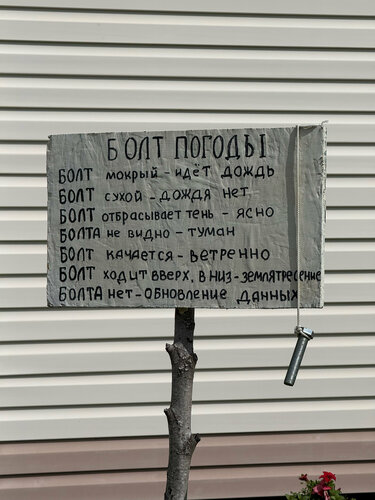 БОЛТ ПОГОДЫ
БОЛТ мокрый - идёт дождь
БОЛТ сухой - дождя нет
БОЛТ отбрасывает тень - ясно
БОЛТА не видно - туман
БОЛТ качается - ветренно
БОЛТ ходит вверх, в низ - землятресение
БОЛТА нет - обновление данных